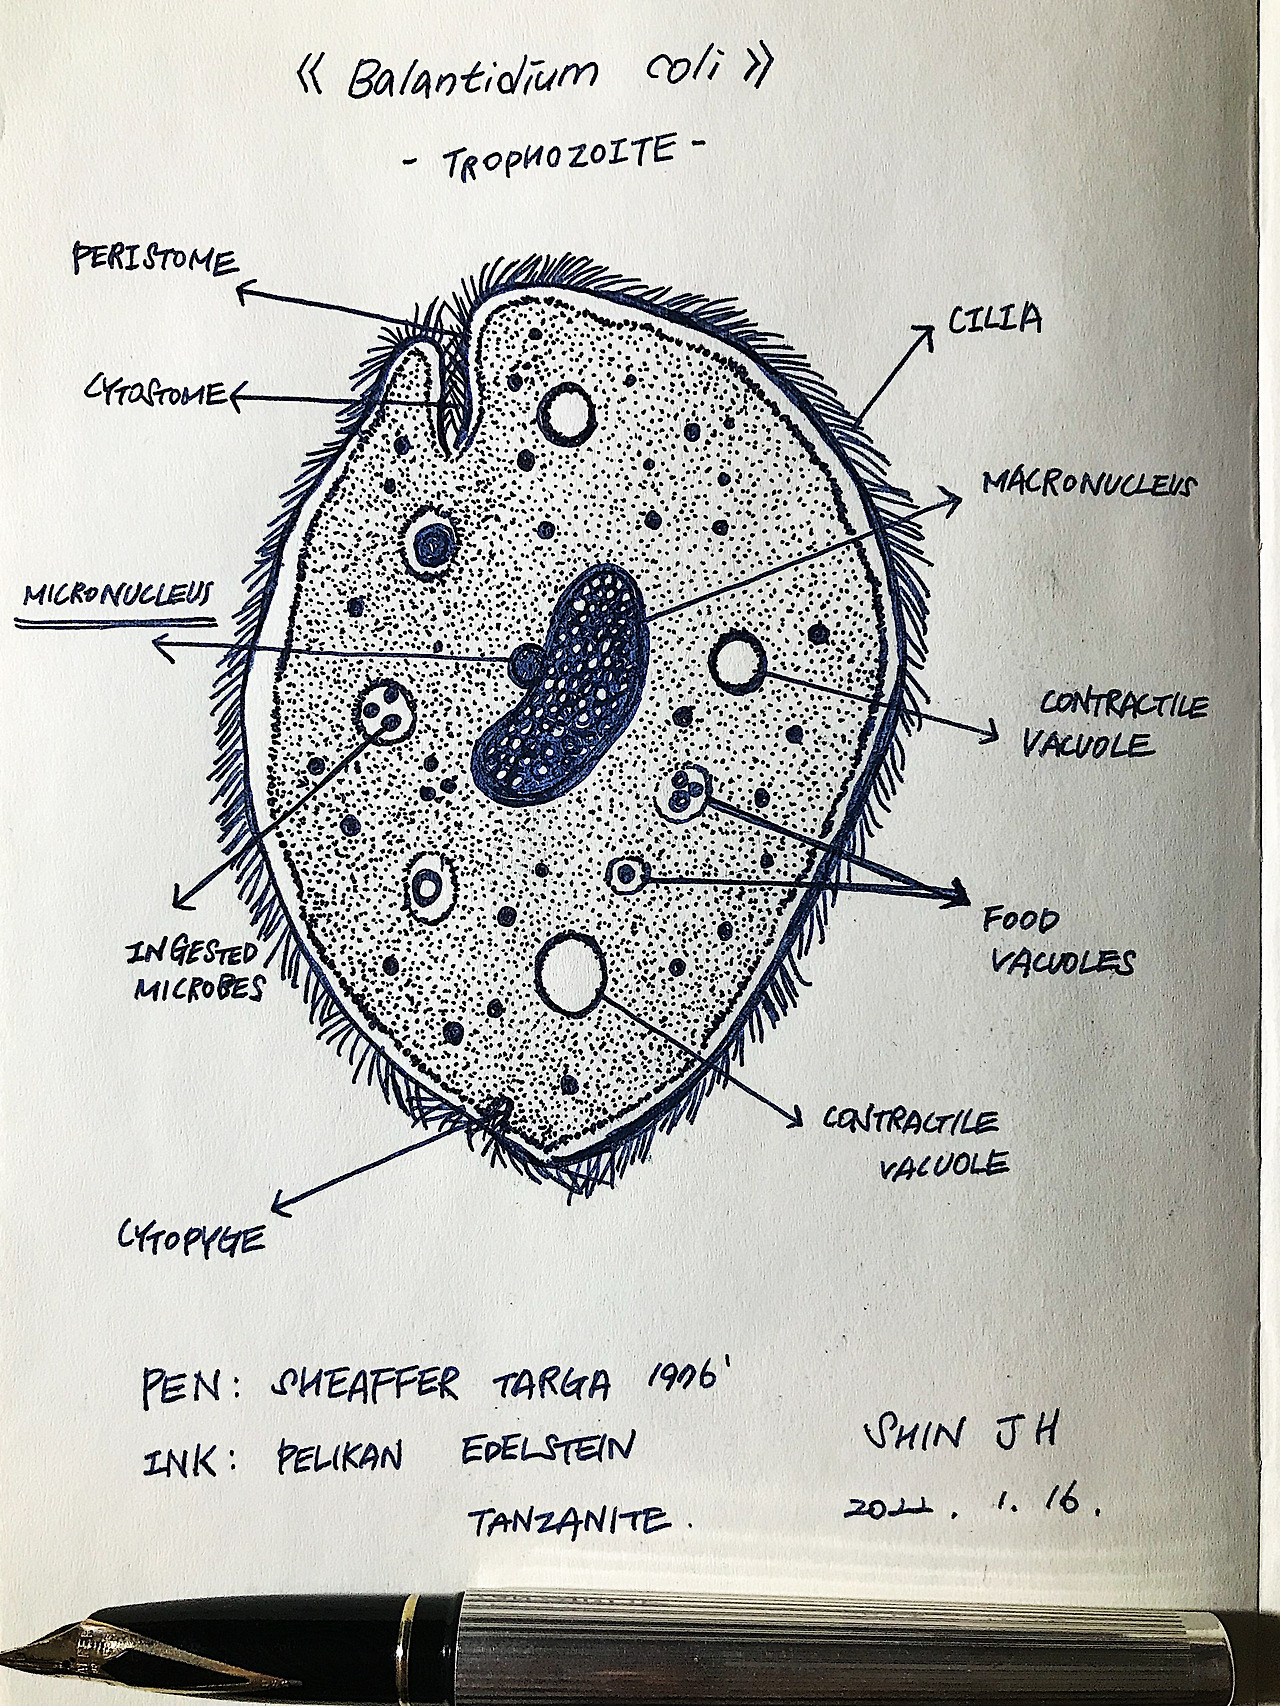 《 Balantidium coli 》
- TROPHOZOITE -
PERISTOME
CILIA
CYTOSTOME
MACRONUCLEUS
MICRONUCLEUS
CONTRACTILE
VACUOLE
FOOD
VACUOLES
INGESTED
MICROBES
CONTRACTILE
VACUOLE
CYTOPYGE
PEN: SHEAFFER TARGA 1976'
INK: PELIKAN EDELSTEIN
TANZANITE.
SHIN JH
2022. 1. 16.